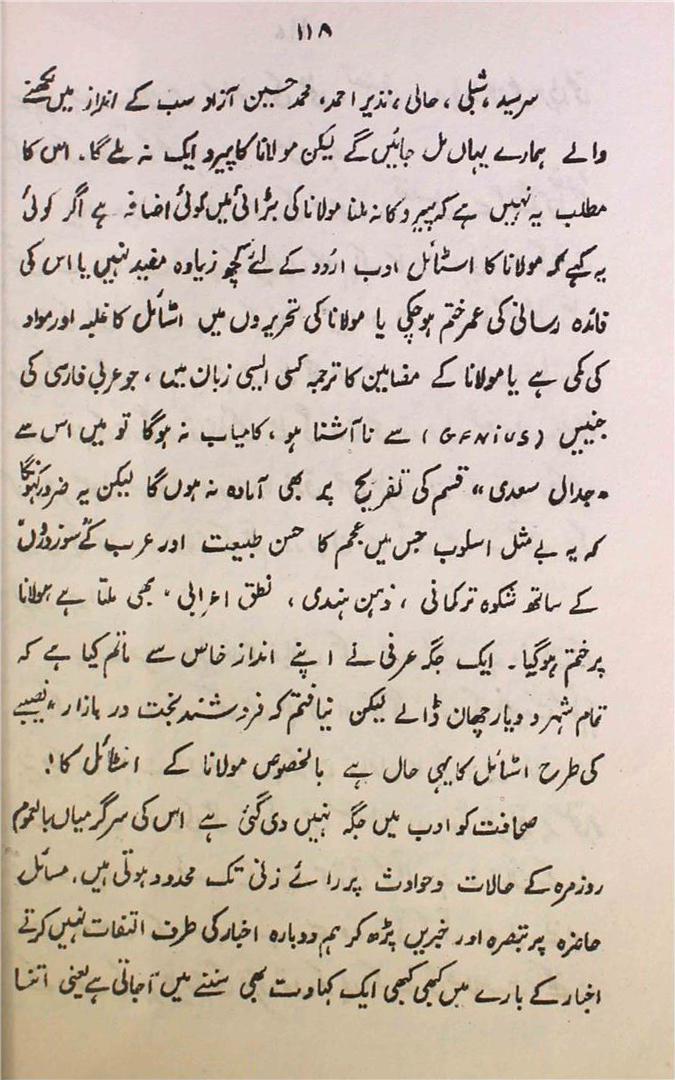 ۱۱۸
سرسید، شبلی، حالی، نذیر احمد، محمد حسین آزاد سب کے انداز میں لکھنے
والے ہمارے یہاں مل جائیں گے لیکن مولانا کا پیرو ایک نہ ملے گا۔ اس کا
مطلب یہ نہیں ہے کہ پیرو کا نہ ملنا مولانا کی بڑائی میں کوئی اضافہ ہے اگر کوئی
یہ کہے کہ مولانا کا اسٹائل ادب اردو کے لئے کچھ زیادہ مفید نہیں یا اس کی
فائدہ رسانی کی عمر ختم ہو چکی یا مولانا کی تحریروں میں اسٹائل کا غلبہ اور مواد
کی کمی ہے یا مولانا کے مضامین کا ترجمہ کسی ایسی زبان میں، جو عربی فارسی کی
جینیس (GENIUS) سے نا آشنا ہو، کامیاب نہ ہوگا تو میں اس سے
"جدال سعدی" قسم کی تفریح پر بھی آمادہ نہ ہوں گا لیکن یہ ضرور کہونگا
کہ یہ بے مثل اسلوب جس میں عجم کا حسن طبیعت اور عرب کے سوز دروں
کے ساتھ شکوہ ترکمانی، ذہن ہندی، نطق اعرابی، بھی ملتا ہے مولانا
پر ختم ہو گیا۔ ایک جگہ عرفی نے اپنے انداز خاص سے ماتم کیا ہے کہ
تمام شہر و دیار چھان ڈالے لیکن نیافتم کہ فروشند بخت در بازار" نصیبے
کی طرح اسٹائل کا یہی حال ہے بالخصوص مولانا کے اسٹائل کا!
صحافت کو ادب میں جگہ نہیں دی گئی ہے اس کی سرگرمیاں بالعموم
روزمرہ کے حالات و حوادث پر رائے زنی تک محدود ہوتی ہیں۔ مسائل
حاضرہ پر تبصرہ اور خبریں پڑھ کر ہم دوبارہ اخبار کی طرف التفات نہیں کرتے
اخبار کے بارے میں کبھی کبھی ایک کہاوت بھی سننے میں آجاتی ہے یعنی اتنا